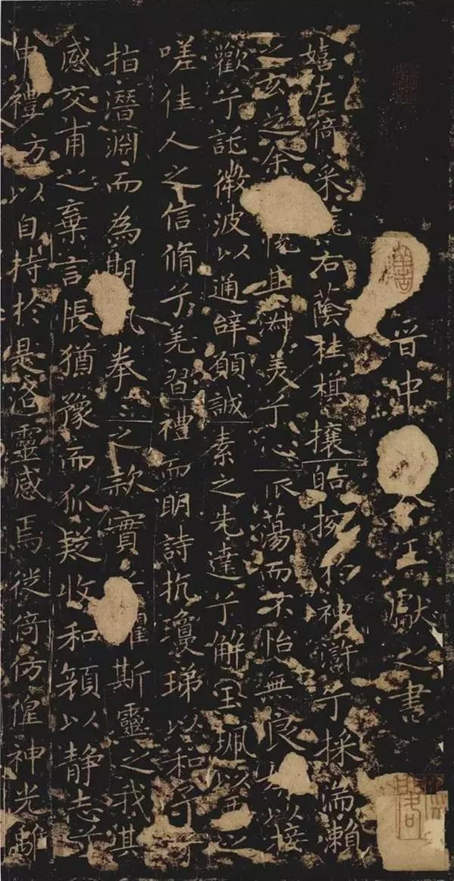 晉中令王獻之書
嬉左倚采旄右蔭桂棋攘皓捥於神滸兮採湍瀨
之玄芝余悅其淑美兮心振蕩而不怡無良媒以接
歡兮託微波以通辭願誠素之先達兮解玉珮以要之
嗟佳人之信脩兮羌習禮而明詩抗瓊珶以和予兮
指潛淵而為期執拳〻之款實懼斯靈之我其
感交甫之棄言悵猶豫而狐疑收和顏以靜志兮
申禮方以自持於是洛靈感焉徙倚仿偟神光離